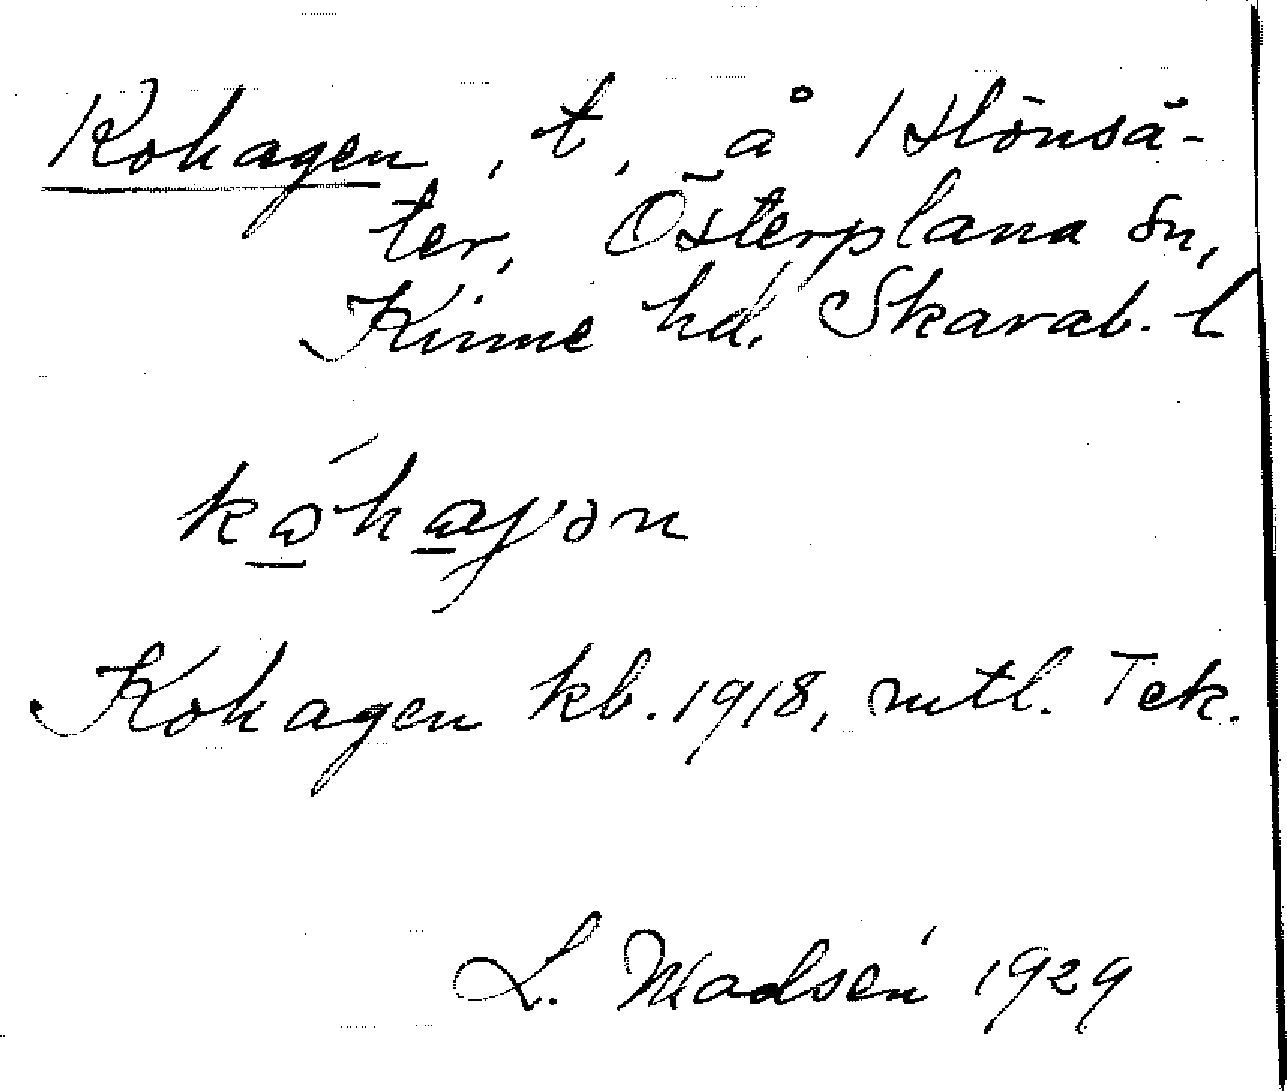 Kohagen, t, å Hönsä-
ter, Österplana sn,
Kinne hd. Skarab. l
Kohagen kb. 1918, mtl. Tek.
L. Madsén 1929